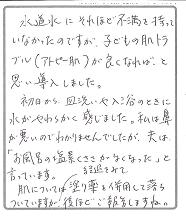 水道水にそれほど不満を持って
いなかったのですが、子どもの肌トラ
ブル(アトピー肌)が良くなれば、と
思い導入しました。
初日から皿洗いや入浴のときに
水がやわらかく感じました。私は鼻
が悪いのでわかりませんでしたが、夫は
「お風呂の塩素くささがなくなった」と
言っています。
肌については塗り薬を併用して落ち
ついていますが、経過を見て後ほどご報告しますね。